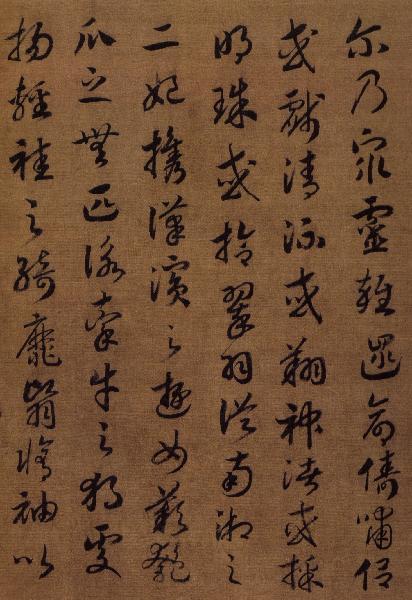 尔乃衆靈雜遝命儔嘯侶
或戲清流或翔神渚或採
明珠或拾翠羽從南湘之
二妃攜漢濱之遊女歎匏
瓜之無匹詠牽牛之獨處
揚輕袿之綺靡翳脩袖以